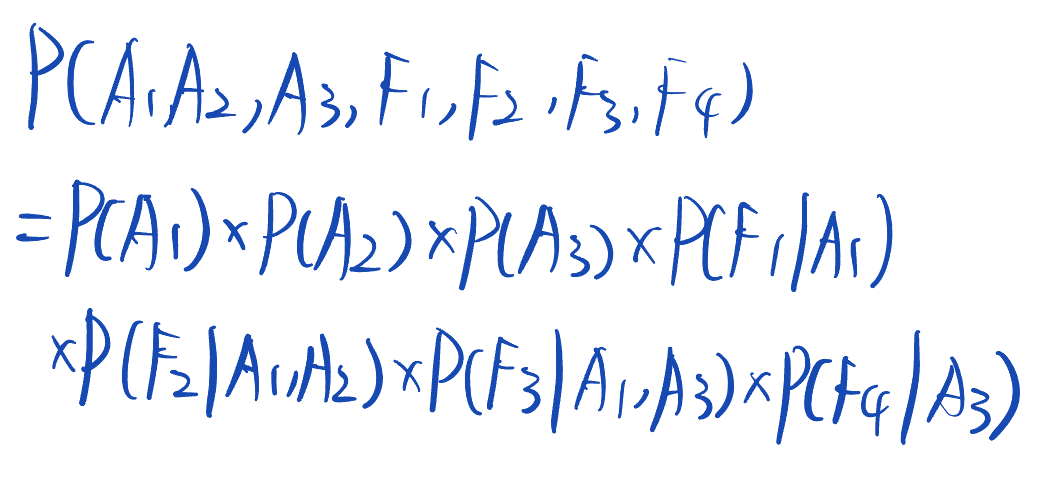 P(A₁,A₂,A₃,F₁,F₂,F₃,F₄)
=P(A₁)×P(A₂)×P(A₃)×P(F₁|A₁)
×P(F₂|A₁,A₂)×P(F₃|A₁,A₃)×P(F₄|A₃)